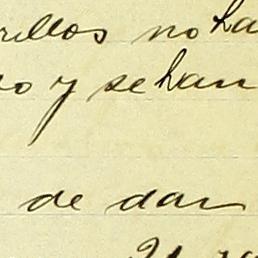 rillos no ha
o y se han
de dar